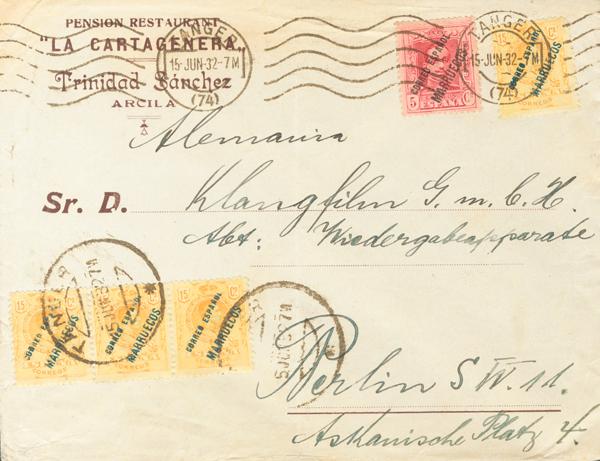 PENSION RESTAURANT
"LA CARTAGENERA"
Trinidad Sánchez
ARCILA
TANGER
15-JUN-32-7M
(74)
TANGER
15-JUN-32-7M
(74)
CORREO ESPAÑOL
MARRUECOS
5 Cs
ESPAÑA
15 Cs
CORREO ESPAÑOL
MARRUECOS
CORREOS
Alemania
Sr. D. Klangfilm G. m. b. H.
Abt: Wiedergabeapparate
TANGER
15 JUN 32 7M
15
CORREO ESPAÑOL
MARRUECOS
CORREOS
CORREO ESPAÑOL
MARRUECOS
CORREOS
15 Cs
CORREO ESPAÑOL
MARRUECOS
CORREOS
Berlin S W. 11.
Askanische Platz 4.